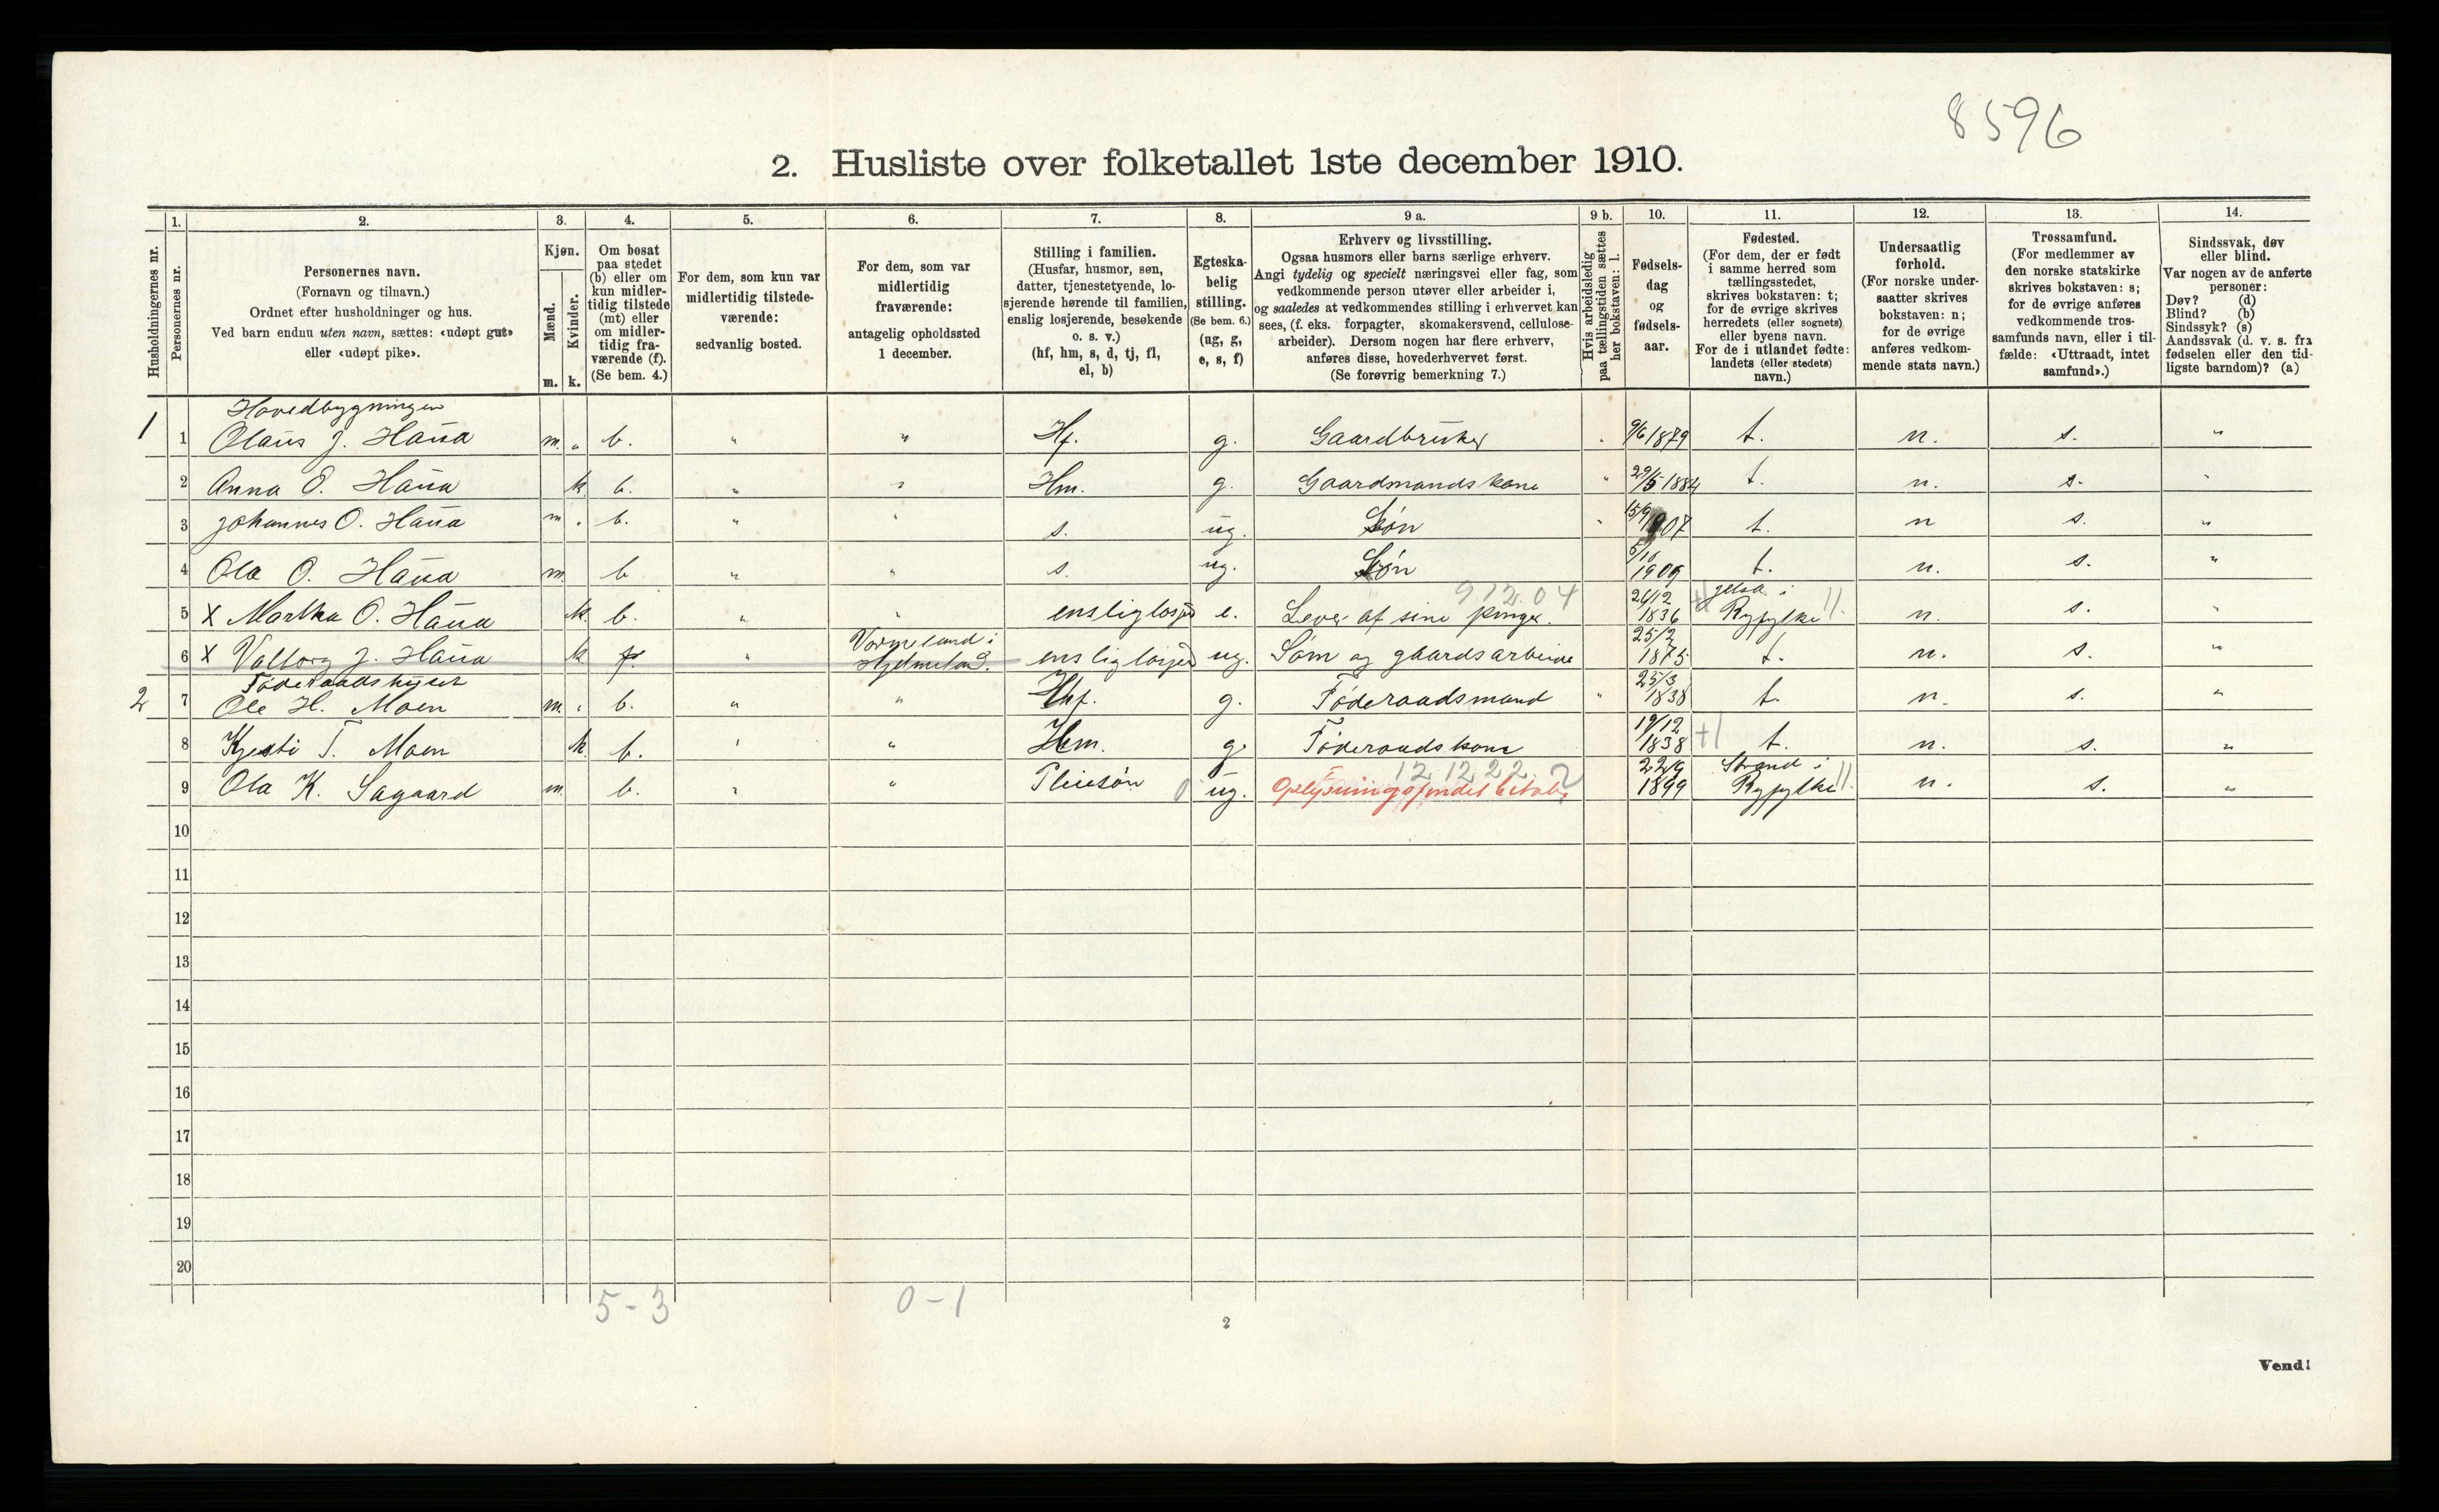 8596
2. Husliste over folketallet 1ste december 1910.
1. 2. 3. 4. 5. 6. 7. 8. 9 a. 9 b. 10. 11. 12. 13. 14.
Husholdningernes nr.
Personernes nr.
Personernes navn.
(Fornavn og tilnavn.)
Ordnet efter husholdninger og hus.
Ved barn endnu uten navn, sættes: «udøpt gut»
eller «udøpt pike».
Kjøn.
Mænd.
Kvinder.
m. k.
Om bosat
paa stedet
(b) eller om
kun midler-
tidig tilstede
(mt) eller
om midler-
tidig fra-
værende (f).
(Se bem. 4.)
For dem, som kun var
midlertidig tilstede-
værende:
sedvanlig bosted.
For dem, som var
midlertidig
fraværende:
antagelig opholdssted
1 december.
Stilling i familien.
(Husfar, husmor, søn,
datter, tjenestetyende, lo-
sjerende hørende til familien,
enslig losjerende, besøkende
o. s. v.)
(hf, hm, s, d, tj, fl,
el, b)
Egteska-
belig
stilling.
(Se bem. 6.)
(ug, g,
e, s, f)
Erhverv og livsstilling.
Ogsaa husmors eller barns særlige erhverv.
Angi tydelig og specielt næringsvei eller fag, som
vedkommende person utøver eller arbeider i,
og saaledes at vedkommendes stilling i erhvervet kan
sees, (f. eks. forpagter, skomakersvend, cellulose-
arbeider). Dersom nogen har flere erhverv,
anføres disse, hovederhvervet først.
(Se forøvrig bemerkning 7.)
Hvis arbeidsledig
paa tællingstiden sættes
her bokstaven: l.
Fødsels-
dag
og
fødsels-
aar.
Fødested.
(For dem, der er født
i samme herred som
tællingsstedet,
skrives bokstaven: t;
for de øvrige skrives
herredets (eller sognets)
eller byens navn.
For de i utlandet fødte:
landets (eller stedets)
navn.)
Undersaatlig
forhold.
(For norske under-
saatter skrives
bokstaven: n;
for de øvrige
anføres vedkom-
mende stats navn.)
Trossamfund.
(For medlemmer av
den norske statskirke
skrives bokstaven: s;
for de øvrige anføres
vedkommende tros-
samfunds navn, eller i til-
fælde: «Uttraadt, intet
samfund».)
Sindssvak, døv
eller blind.
Var nogen av de anførte
personer:
Døv? (d)
Blind? (b)
Sindssyk? (s)
Aandssvak (d. v. s. fra
fødselen eller den tid-
ligste barndom)? (a)
Hovedbygningen
1 1 Olaus J. Haua m. „ b. „ „ Hf. g. Gaardbruker „ 9/6 1879 t. n. s. „
2 Anna O. Haua k b. „ „ Hm. g. Gaardmandskone „ 29/5 1884 t. n. s. „
3 Johannes O. Haua m „ b. „ „ s. ug. Søn „ 15/9 1907 t. n s. „
4 Ola O. Haua m. b „ „ s. ug. Søn 5/10 1909 t. n. s. „
9.12.04
5 X Martha O. Haua k. b. „ „ enslig losjer e. Lever af sine penger. 24/12 1836 Jelsa i Ryfylke n. s. „
6 X Valborg J. Haua k f. „ Vormeland i Hjelmeland. enslig losjer ug. Søm og gaardsarbeide 25/2 1875 t. n. s. „
Föderaadshuset
2 7 Ole H. Moen m. „ b. „ „ Hf. g. Föderaadsmand „ 25/3 1838 t. n. s. „
8 Kjersti T. Moen k b. „ „ Hm. g. Föderaadskone 19/12 1838 t. n. s. „
12 12 22. 2
9 Ola K. Sagaard m. b. „ „ Pleiesön 0 ug. 22/9 1899 Strand i Ryfylke n. s. „
10
11
12
13
14
15
16
17
18
19
20
5 - 3 0 - 1
2
Vend!